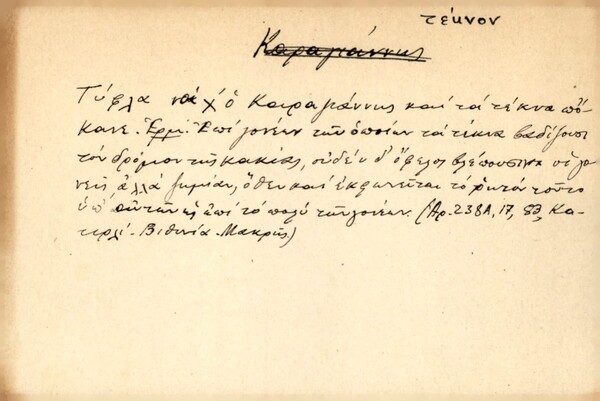 τέκνον
Καραγιάννης
Τύφλα νάχ ὁ Καραγιάννης καὶ τὰ τέκνα πὄ-
κανε. Ἑρμ. Ἐπὶ γονέων τῶν ὁποίων τὰ τέκνα βαδίζουσι
τὸν δρόμον τῆς κακίας, οὐδὲν δ' ὄφελος βλέπουσιν οἱ γο-
νεῖς ἀλλὰ ζημίαν, ὅθεν καὶ ἐκφωνεῖται τὸ ρητὸν τοῦτο
ὑπ' αὐτῶν ὡς ἐπὶ τὸ πολὺ τῶν γονέων. (Ἀρ. 238Α, 17, Κα-
τερλί - Βιθυνία - Μακρῆς)